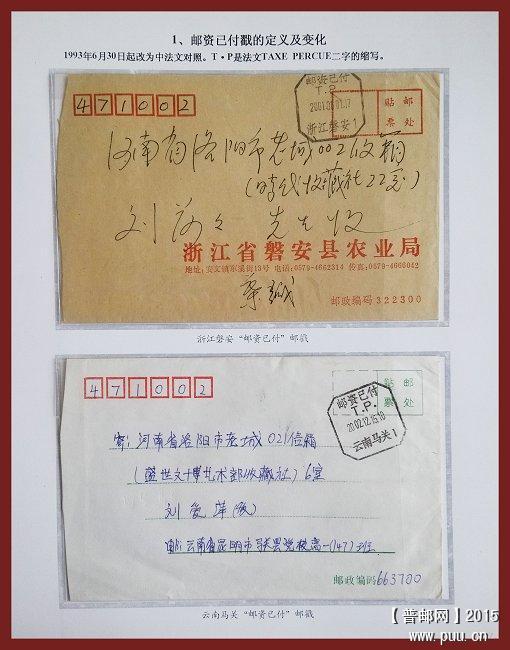 1、邮资已付戳的定义及变化
1993年6月30日起改为中法文对照。T·P是法文TAXE PERCUE二字的缩写。
471002
邮资已付
T.P.
浙江磐安1
贴 邮
票 处
河南省洛阳市老城002收箱
(时代收藏社22室)
刘 先生 收
浙江省磐安县农业局
地址:安文镇东溪街13号 电话:0579-4662314 传真:0579-4666042
邮政编码 322300
浙江磐安“邮资已付”邮戳
471002
邮资已付
T.P.
2002.12.15.18
云南马关1
贴 邮
票 处
寄:河南省洛阳市老城021信箱
(盛世文博艺术部收藏社)6室
刘爱萍(收)
邮政编码 663700
云南马关“邮资已付”邮戳
【普邮网】2015
www.puu.cn